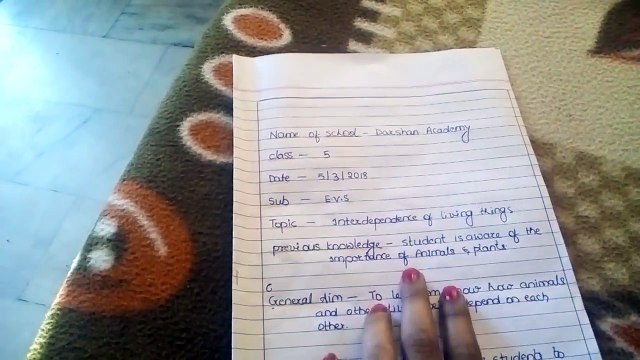 Name of school - Darshan Academy
class - 5
Date - 5/3/2018
Sub - E.V.S
Topic - Interdependence of living things
previous knowledge - student is aware of the
importance of Animals & plants
C
General Aim - To how animals
and depend on each
other.
students to